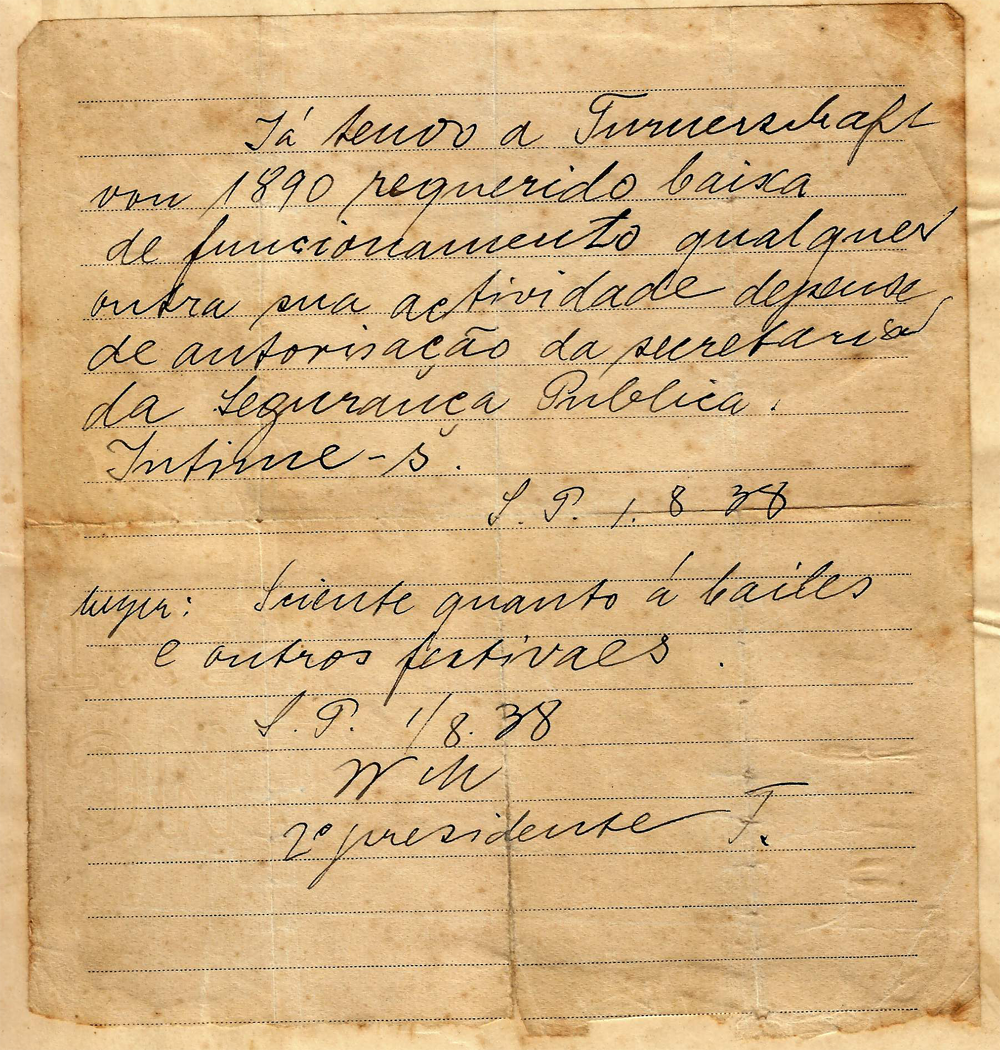 Já tendo a Turnerschaft
von 1890 requerido baixa
de funccionamento qualquer
outra sua actividade depende
de autorisação da secretaria
da Segurança Publica.
Intime-s.
S. P. 1. 8 38
Sciente quanto á bailes
e outros festivaes.
S. P. 1/8. 38
W M
2º presidente T.